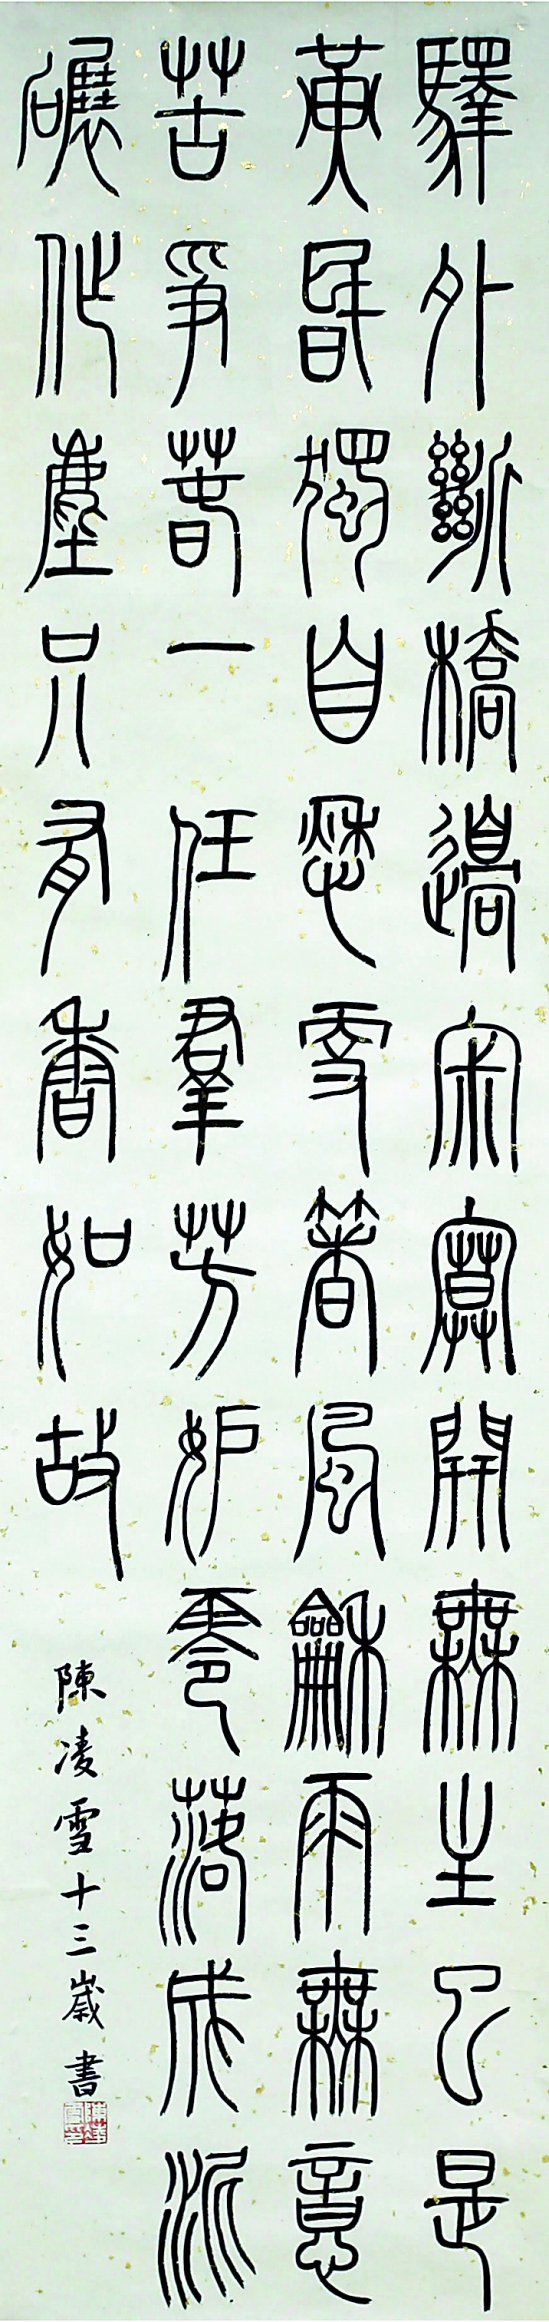 驛外斷橋邊寂寞開無主已是
黃昏獨自愁更著風龢雨無意
苦爭春一任羣芳妒零落成泥
碾作塵只有香如故
陳凌雪十三歲書